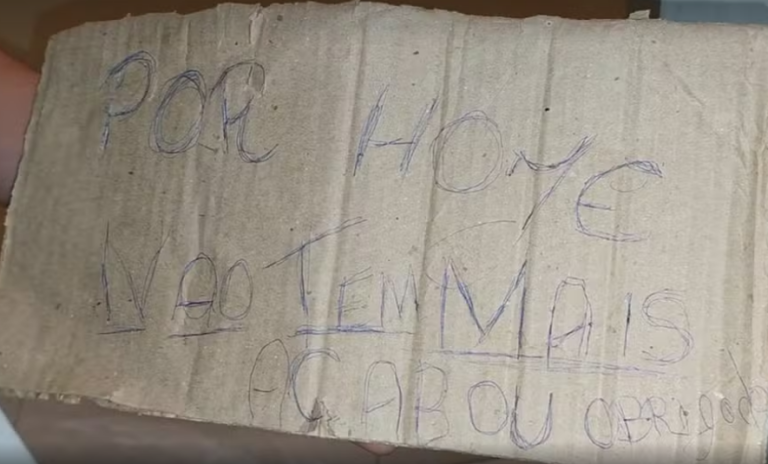 POR HOYE
NAO TEM MAIS
ACABOU OBRIGADO